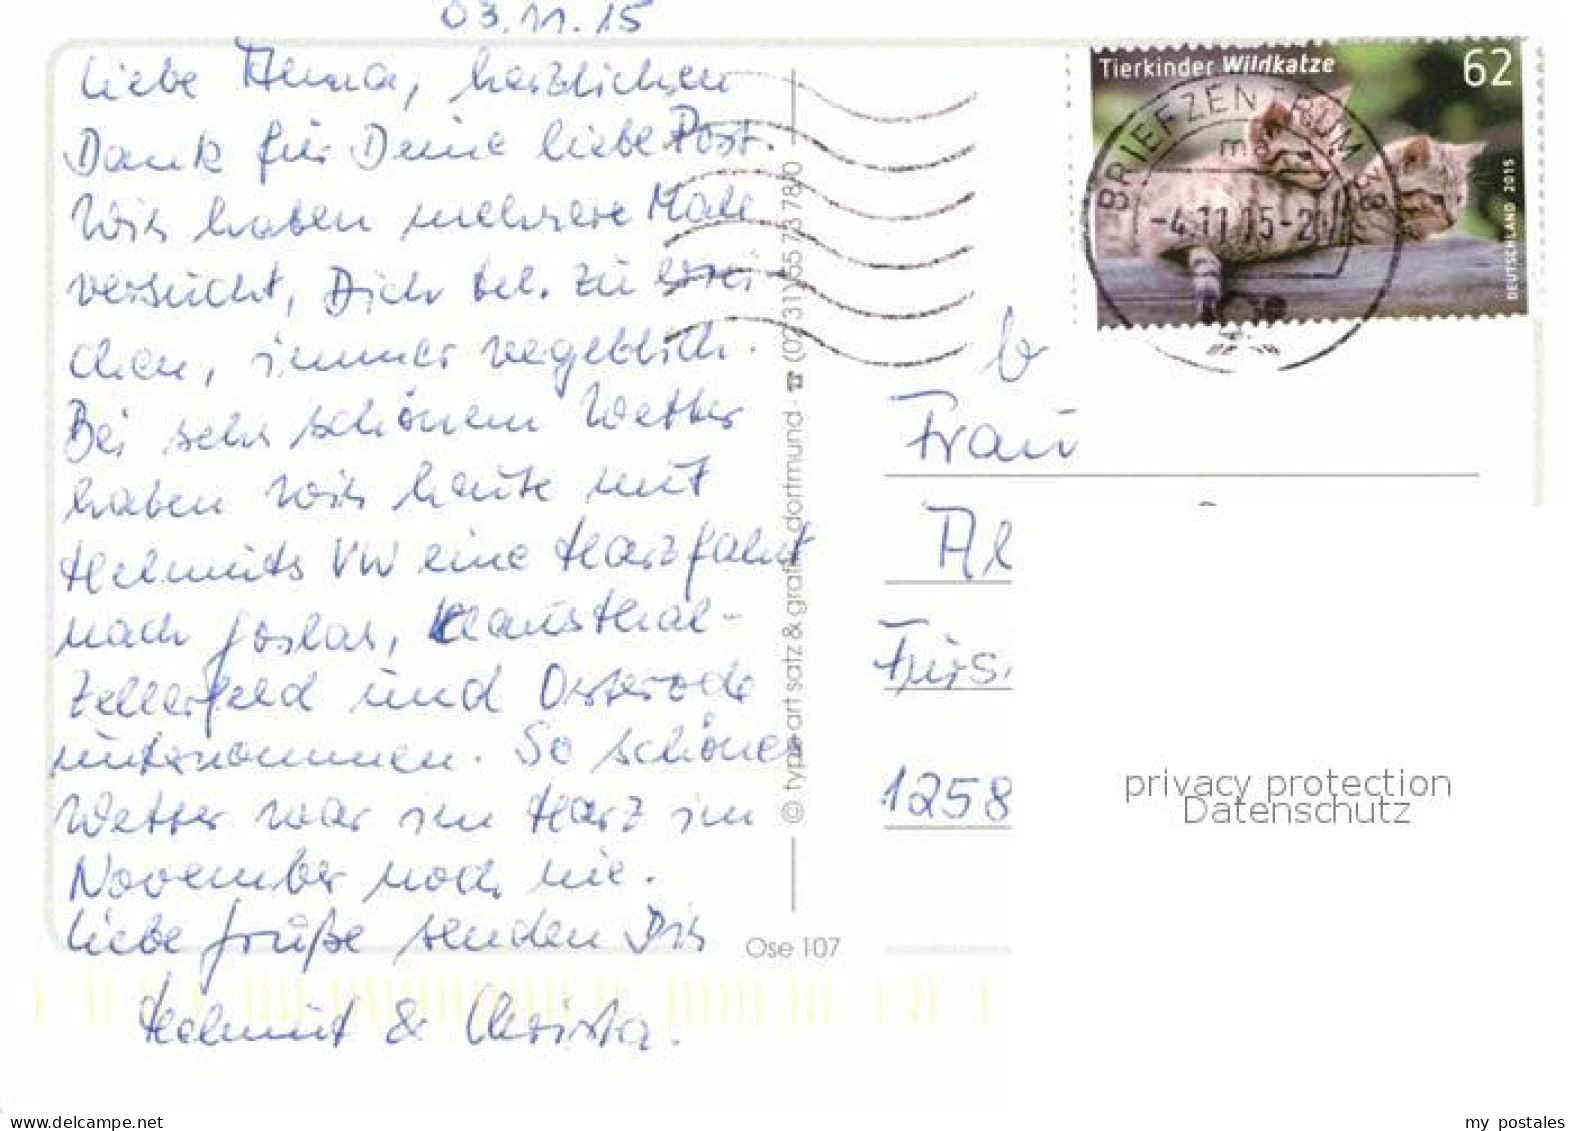 03.11.15
Liebe Anna, herzlichen
Dank für Deine liebe Post.
Wir haben mehrere Male
versucht, Dich tel. zu errei
chen, immer vergeblich.
Bei sehr schönem Wetter
haben wir heute mit
Helmuts VW eine Harzfahrt
nach Goslar, Clausthal-
Zellerfeld und Osterode
unternommen. So schönes
Wetter war im Harz im
November noch nie.
Liebe Grüße senden Dir
Helmut & Christa.
© typo art satz & grafik dortmund · ☎ (0231) 65 73 78/0
Ose 107
Tierkinder Wildkatze 62
DEUTSCHLAND 2015
BRIEFZENTRUM
-4.11.15-2
Frau
Al
Fürs
1258
privacy protection
Datenschutz
my postales